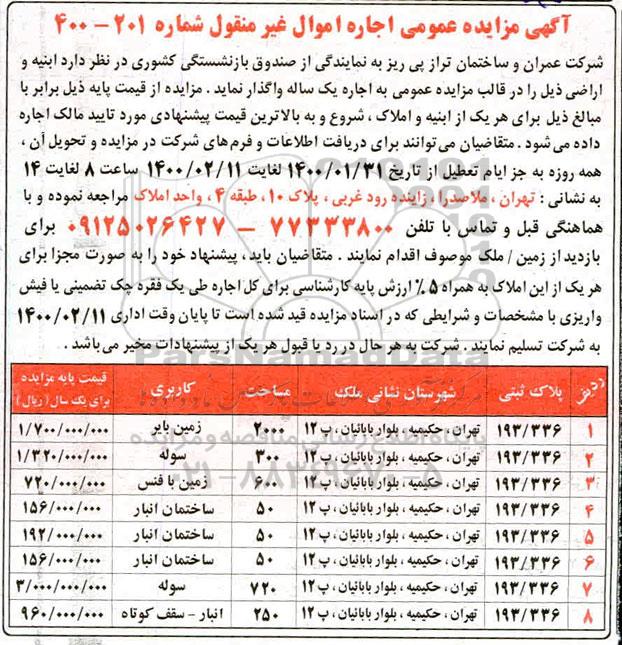 آگهی مزایده عمومی اجاره اموال غیر منقول شماره ۲۰۱ – ۴۰۰
شرکت عمران و ساختمان تراز پی ریز به نمایندگی از صندوق بازنشستگی کشوری در نظر دارد ابنیه و
اراضی ذیل را در قالب مزایده عمومی به اجاره یک ساله واگذار نماید . مزایده از قیمت پایه ذیل برابر با
مبالغ ذیل برای هر یک از ابنیه و املاک ، شروع و به بالاترین قیمت پیشنهادی مورد تایید مالک اجاره
داده می‌شود . متقاضیان می‌توانند برای دریافت اطلاعات و فرم‌های شرکت در مزایده و تحویل آن ،
همه روزه به جز ایام تعطیل از تاریخ ۱۴۰۰/۰۱/۳۱ لغایت ۱۴۰۰/۰۲/۱۱ ساعت ۸ لغایت ۱۴
به نشانی : تهران ، ملاصدرا ، زاینده رود غربی ، پلاک ۱۰، طبقه ۴ ، واحد املاک مراجعه نموده و با
هماهنگی قبل و تماس با تلفن ۷۷۳۳۳۸۰۰ – ۰۹۱۲۵۰۲۶۴۲۷ برای
بازدید از زمین / ملک موصوف اقدام نمایند . متقاضیان باید، پیشنهاد خود را به صورت مجزا برای
هر یک از این املاک به همراه ۵٪ ارزش پایه کارشناسی برای کل اجاره طی یک فقره چک تضمینی یا فیش
واریزی با مشخصات و شرایطی که در اسناد مزایده قید شده است تا پایان وقت اداری ۱۴۰۰/۰۲/۱۱
به شرکت تسلیم نمایند . شرکت به هر حال در رد یا قبول هر یک از پیشنهادات مخیر می‌باشد .
ParsNamadData
ردیف پلاک ثبتی شهرستان نشانی ملک مساحت کاربری قیمت پایه مزایده برای یک سال (ریال)
۱ ۱۹۳/۳۳۶ تهران ، حکیمیه ، بلوار بابائیان ، پ ۱۲ ۲۰۰۰ زمین بایر ۱/۷۰۰/۰۰۰/۰۰۰
۲ ۱۹۳/۳۳۶ تهران ، حکیمیه ، بلوار بابائیان ، پ ۱۲ ۳۰۰ سوله ۱/۳۲۰/۰۰۰/۰۰۰
۳ ۱۹۳/۳۳۶ تهران ، حکیمیه ، بلوار بابائیان ، پ ۱۲ ۶۰۰ زمین با فنس ۷۲۰/۰۰۰/۰۰۰
۴ ۱۹۳/۳۳۶ تهران ، حکیمیه ، بلوار بابائیان ، پ ۱۲ ۵۰ ساختمان انبار ۱۵۶/۰۰۰/۰۰۰
۵ ۱۹۳/۳۳۶ تهران ، حکیمیه ، بلوار بابائیان ، پ ۱۲ ۵۰ ساختمان انبار ۱۹۲/۰۰۰/۰۰۰
۶ ۱۹۳/۳۳۶ تهران ، حکیمیه ، بلوار بابائیان ، پ ۱۲ ۵۰ ساختمان انبار ۱۵۶/۰۰۰/۰۰۰
۷ ۱۹۳/۳۳۶ تهران ، حکیمیه ، بلوار بابائیان ، پ ۱۲ ۷۲۰ سوله ۳/۰۰۰/۰۰۰/۰۰۰
۸ ۱۹۳/۳۳۶ تهران ، حکیمیه ، بلوار بابائیان ، پ ۱۲ ۲۵۰ انبار – سقف کوتاه ۹۶۰/۰۰۰/۰۰۰